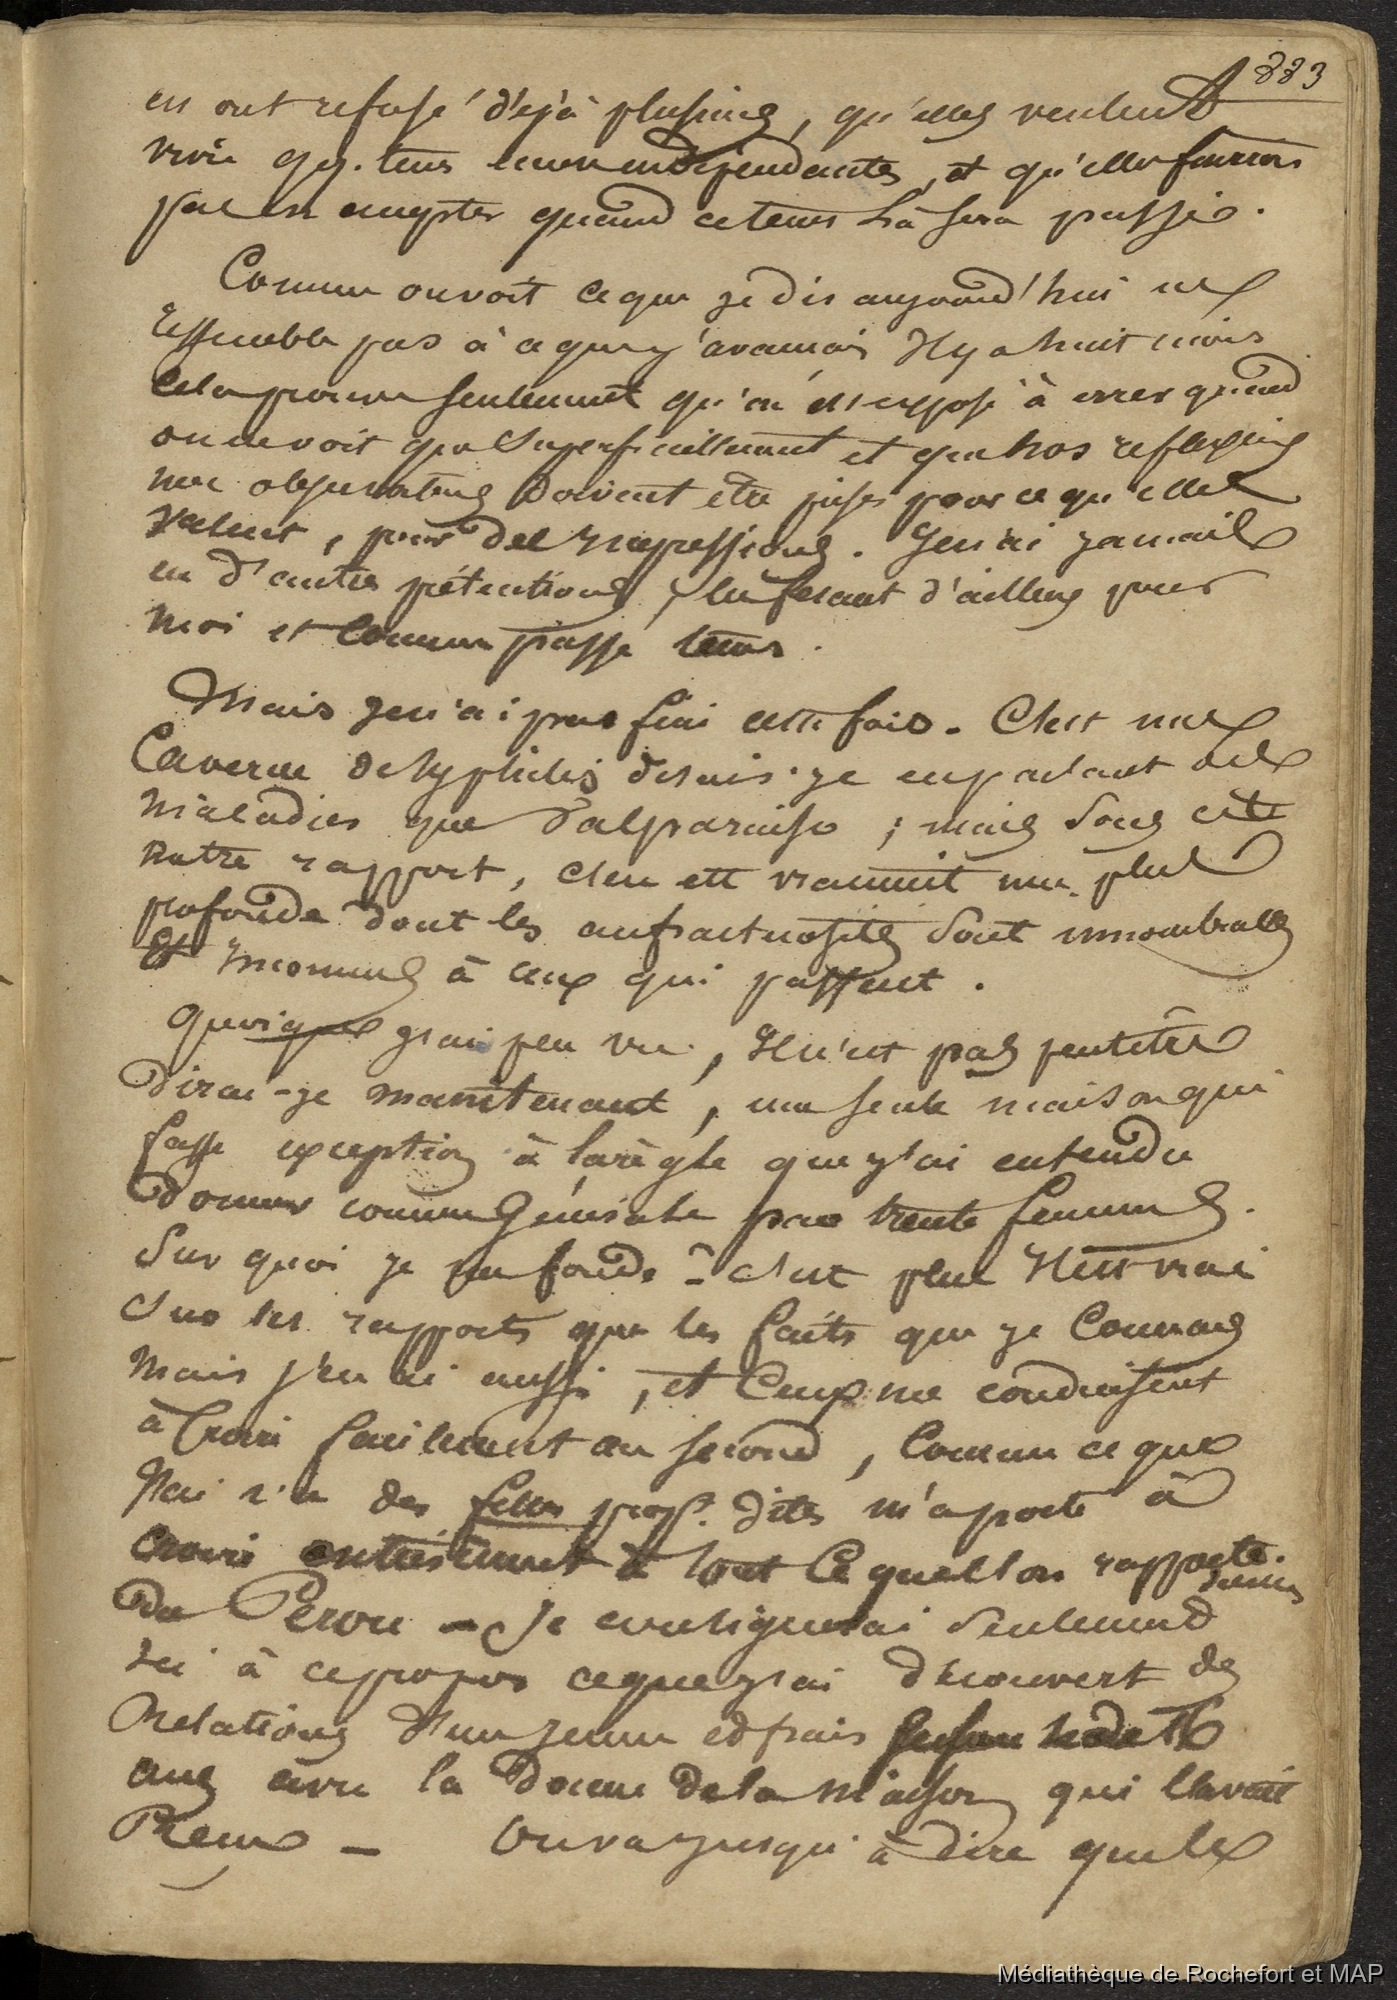 333
en ont refusé déjà plusieurs, qu'elles veulent
vivre qq. tems encore indépendantes, et qu'elles
en accepter quand ce tems là sera passé.
Comme on voit ce que je dis aujourd'hui ne
ressemble pas à ce que j'avançais Il y a huit mois
Cela prouve seulement qu'on est exposé à errer quand
on ne voit que Superficiellement et que nos reflexions
nos observations doivent être prises pour ce qu'elles
valent, pour des Impressions. Je n'ai jamais
eu d'autres prétentions, les fesant d'ailleurs pour
moi et comme passe tems.
Mais je n'ai pas fini cette fois. C'est une
Caverne de Syphilis disais-je en parlant des
maladies que Valparaiso ; mais Sous cet
autre rapport, c'en est vraiment une plus
profonde dont les anfractuosités Sont innombrables
Et Inconnues à ceux qui passent.
Quoique j'aie peu vu, Il n'est pas peutêtre
dirai-je maintenant, une seule maison qui
fasse exception à la règle que j'ai entendu
donner comme Générale par trente femmes.
Sur quoi je me fonde - c'est plus Il est vrai
Sur les rapports que les faits que je Connais
mais j'en ai aussi, et Ceux me conduisent
à Croire facilement au second, Comme ce que
J'ai vu des filles prop. dites m'a porté à
croire entièrement à tout Ce que l'on rapporte
du Perou - Je consignerai Seulement
Ici à ce propos ce que j'ai découvert des
Relations d'un jeune et frais
ans avec la dame de la Maison qui l'avait
Reçu - On va jusqu'à dire que les